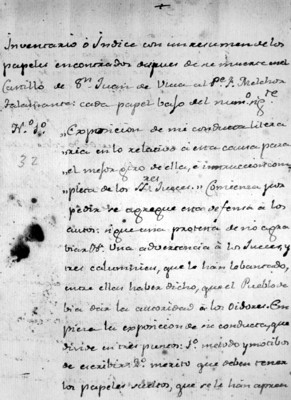 Inventario ó Indice con un resumen de los
papeles encontrados despues de su muerte en el
Castillo de Sn. Juan de Ulua al Pe. F. Melchor
de Talamantes: cada papel bajo del num.o sigte
N.o 1.o
32
"Exposicion de mi conducta litera
"ria en lo relativo á esta causa para
"el mejor giro de ella, é instruccion com
"pleta de los SSres. Jueces." Comienza por
pedir se agregue esta defensa á los
autos: sigue una protesta de no agra
viar &a. Una advertencia á los Jueces, y
tres calumnias, que le han lebantado,
entre ellas haber dicho, que el Pueblo de
bia dar la autoridad á los Oidores. Em
pieza la exposicion de su conducta, que
divide en tres puntos: 1.o metodo y motibos
de escribir: 2.o merito que deben tener
los papeles sueltos, que se le han apren